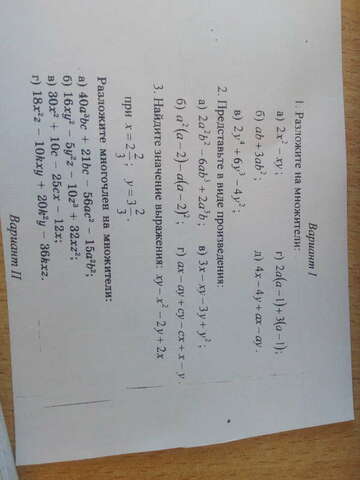 Вариант I
1. Разложите на множители:
а) 2x² – xy;   г) 2a(a – 1) + 3(a – 1);
б) ab + 3ab²;   д) 4x – 4y + ax – ay.
в) 2y⁴ + 6y³ – 4y²;
2. Представьте в виде произведения:
а) 2a²b² – 6ab³ + 2a³b;   в) 3x – xy – 3y + y²;
б) a²(a – 2) – a(a – 2)²;   г) ax – ay + cy – cx + x – y
3. Найдите значение выражения: xy – x² – 2y + 2x
при x = 2 2/3; y = 3 2/3.
Разложите многочлен на множители:
а) 40a³bc + 21bc – 56ac² – 15a²b²;
б) 16xy² – 5y²z – 10z³ + 32xz²;
в) 30x² + 10c – 25cx – 12x;
г) 18x²z – 10kxy + 20k²y – 36kxz.
Вариант II